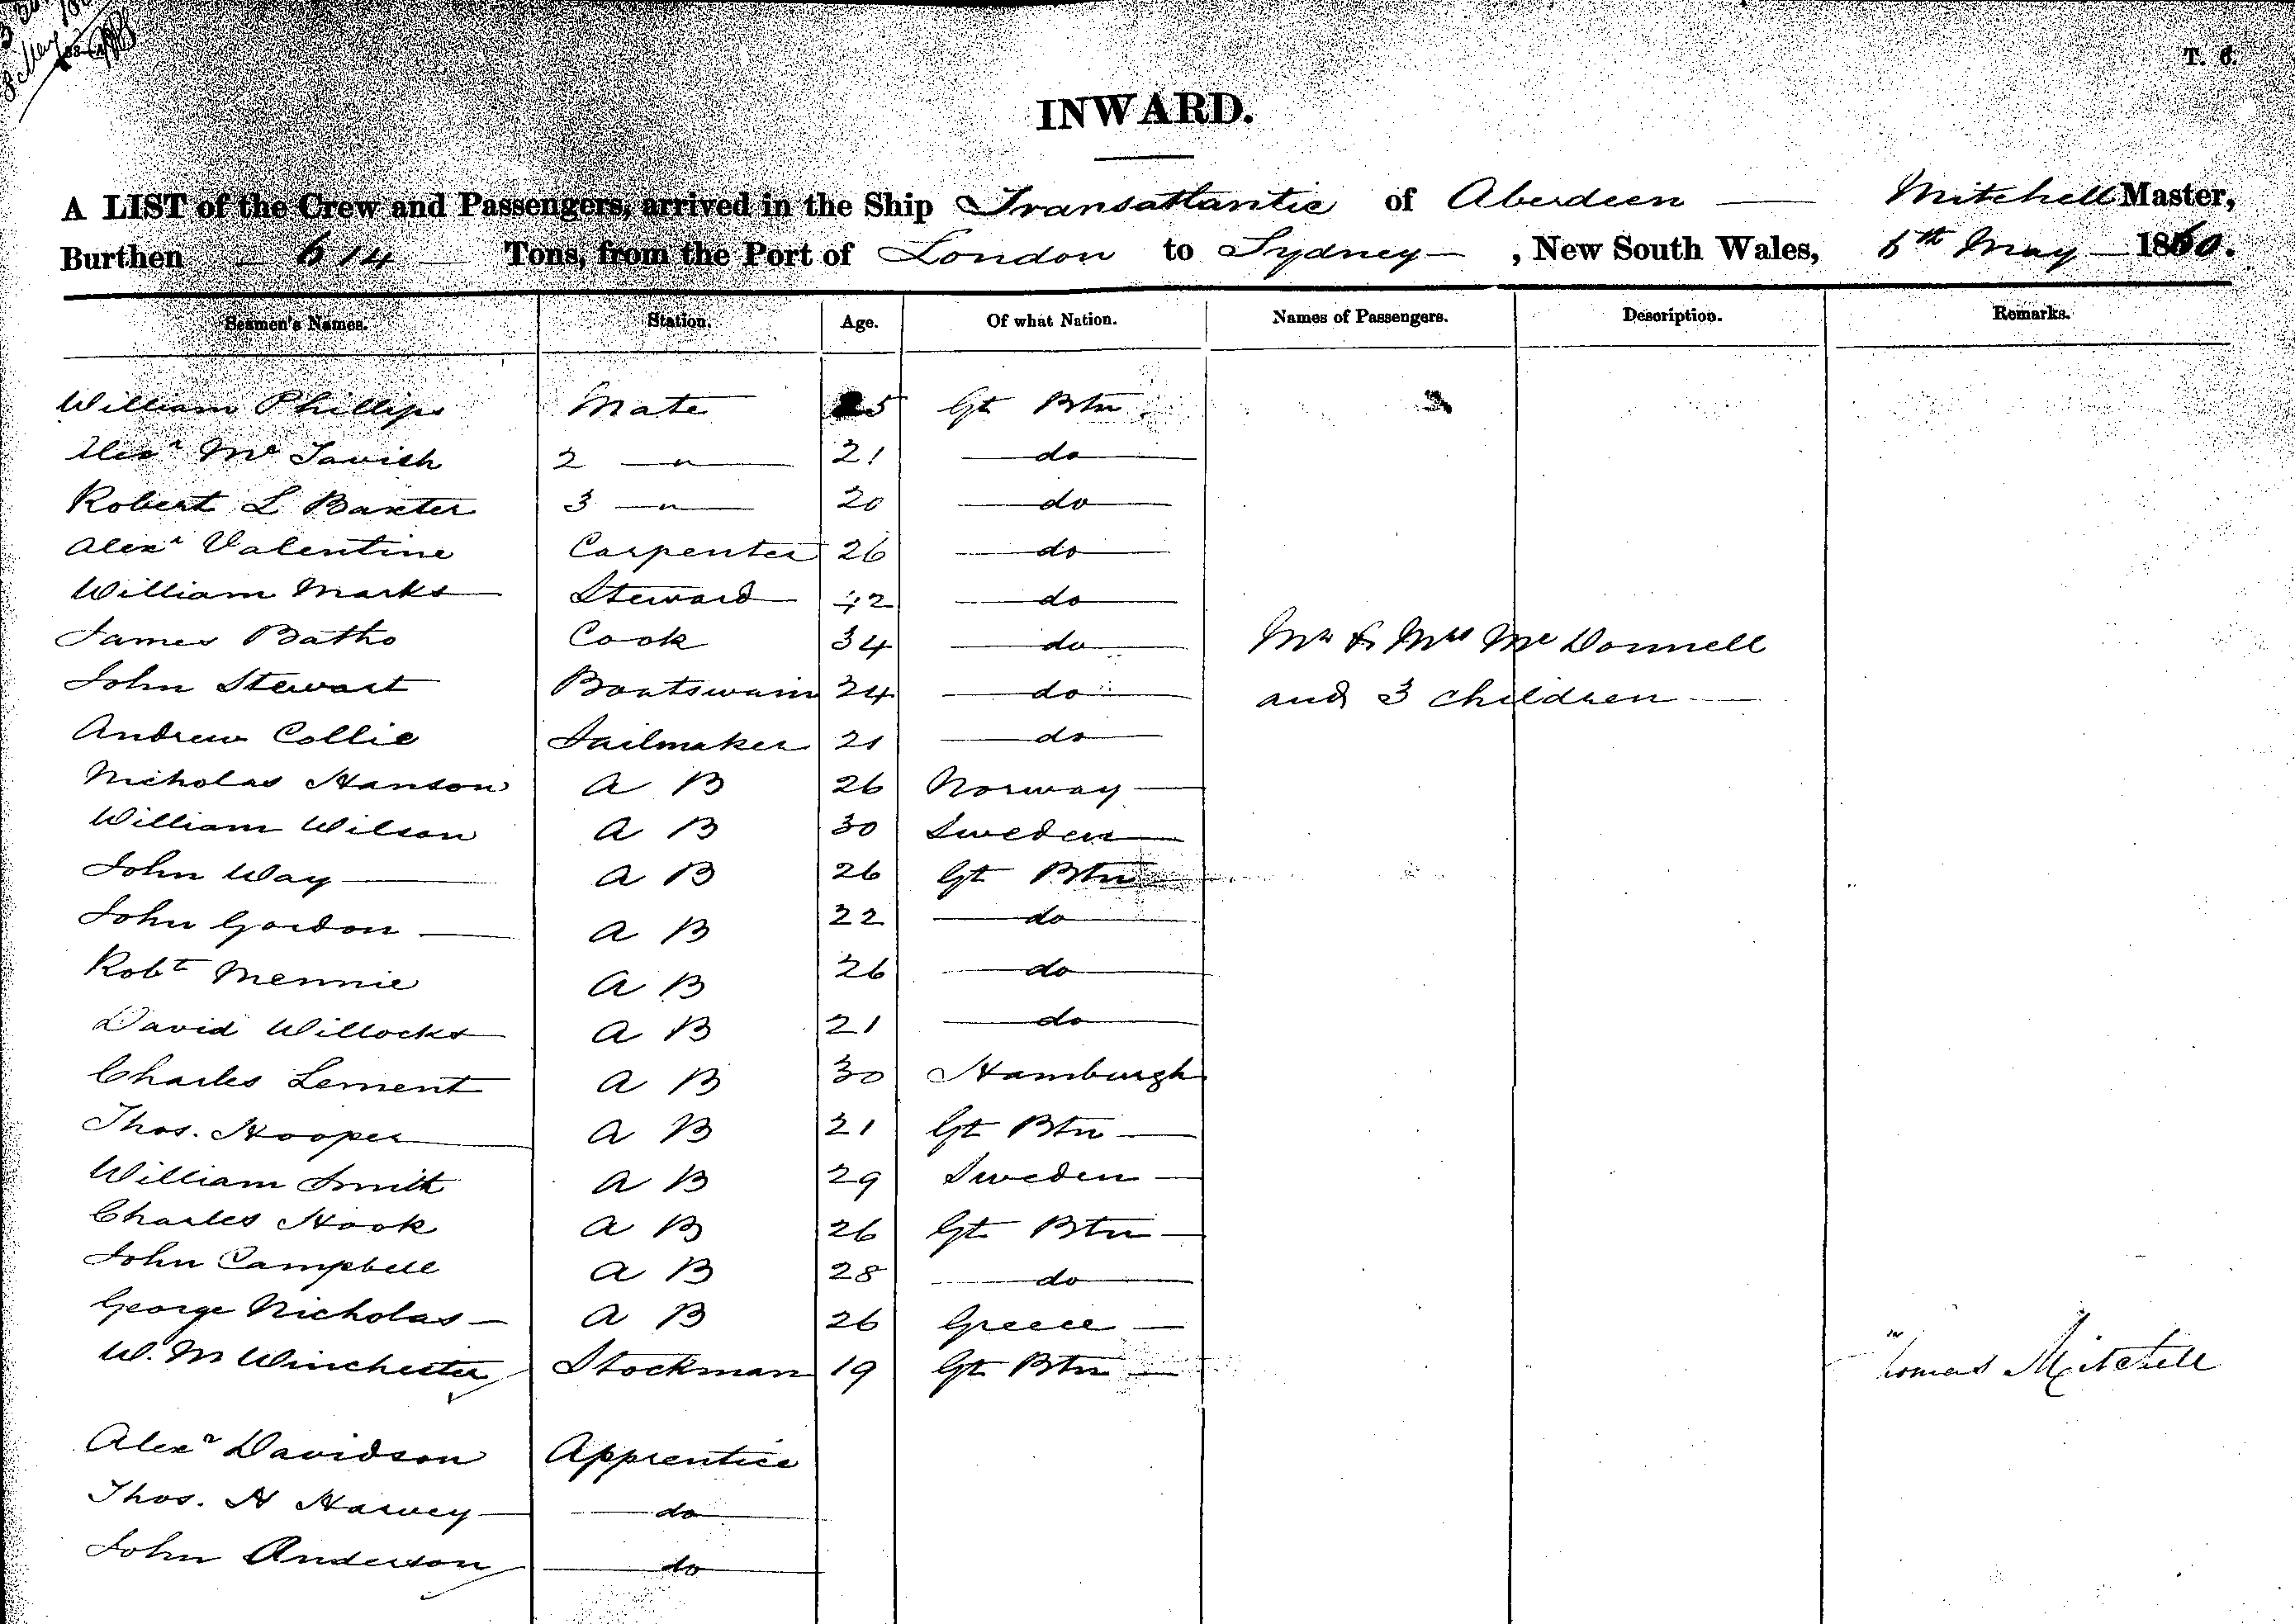 T. 6.
INWARD.
A LIST of the Crew and Passengers, arrived in the Ship Transatlantic of Aberdeen — Mitchell Master,
Burthen — 614 — Tons, from the Port of London to Sydney — , New South Wales, 6th May — 1860.
Seamen's Names. Station. Age. Of what Nation. Names of Passengers. Description. Remarks.
William Phillips Mate 25 Gt Btn.
Alexr Mc Tavish 2 — " — 21 — do —
Robert L Baxter 3 — " — 20 — do —
Alexr Valentine Carpenter 26 — do —
William Marks Steward 42 — do —
James Batho Cook 34 — do — Mr & Mrs Mc Donnell
John Stewart Boatswain 24 — do — and 3 children —
Andrew Collie Sailmaker 21 — do —
Nicholas Hanson A B 26 Norway —
William Wilson A B 30 Sweden —
John Way — A B 26 Gt Btn —
John Gordon — A B 22 — do —
Robt Mennie A B 26 — do —
David Willocks A B 21 — do —
Charles Lement A B 30 Hamburgh
Thos. Hooper A B 21 Gt Btn —
William Smith A B 29 Sweden —
Charles Hook A B 26 Gt Btn —
John Campbell A B 28 — do —
George Nicholas — A B 26 Greece —
W. M Winchester Stockman 19 Gt Btn —
Thomas Mitchell
Alexr Davidson Apprentice
Thos. H Harvey — do —
John Anderson — do —